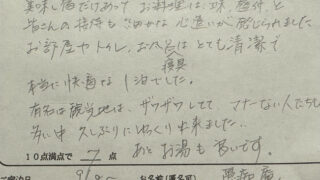 美味し宿だけあって お料理は、味、器、
皆さんの接待も さりげな 心遣いが 感じられました
お部屋やトイレ、お風呂は とても 清潔で
寝具
本当に快適な1泊でした。
有名な観光地は、ザワザワしてて、マナーない人たちも
多い中 久しぶりに ゆっくり出来ました。
10点満点で 7 点 あと お湯も 良いです。
お名前(匿名可)